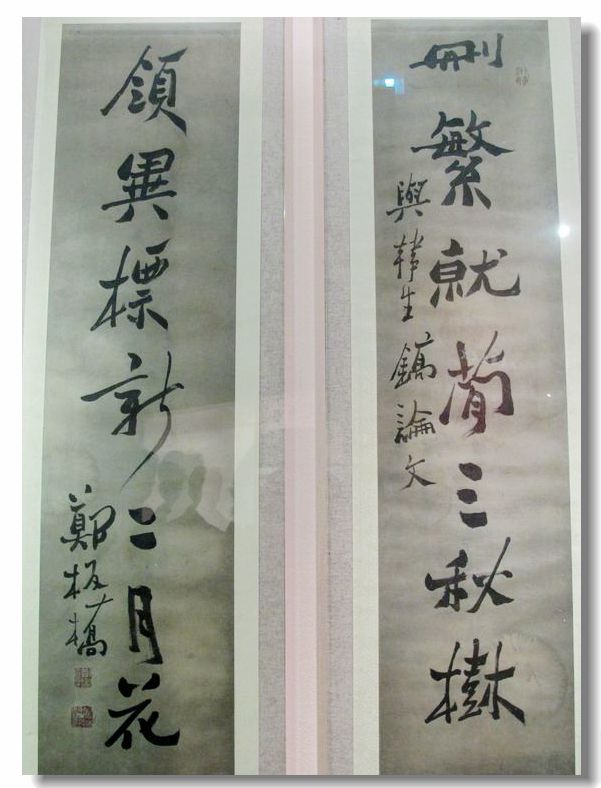 刪繁就簡三秋樹
與韓生鎬論文
領異標新二月花
鄭板橋